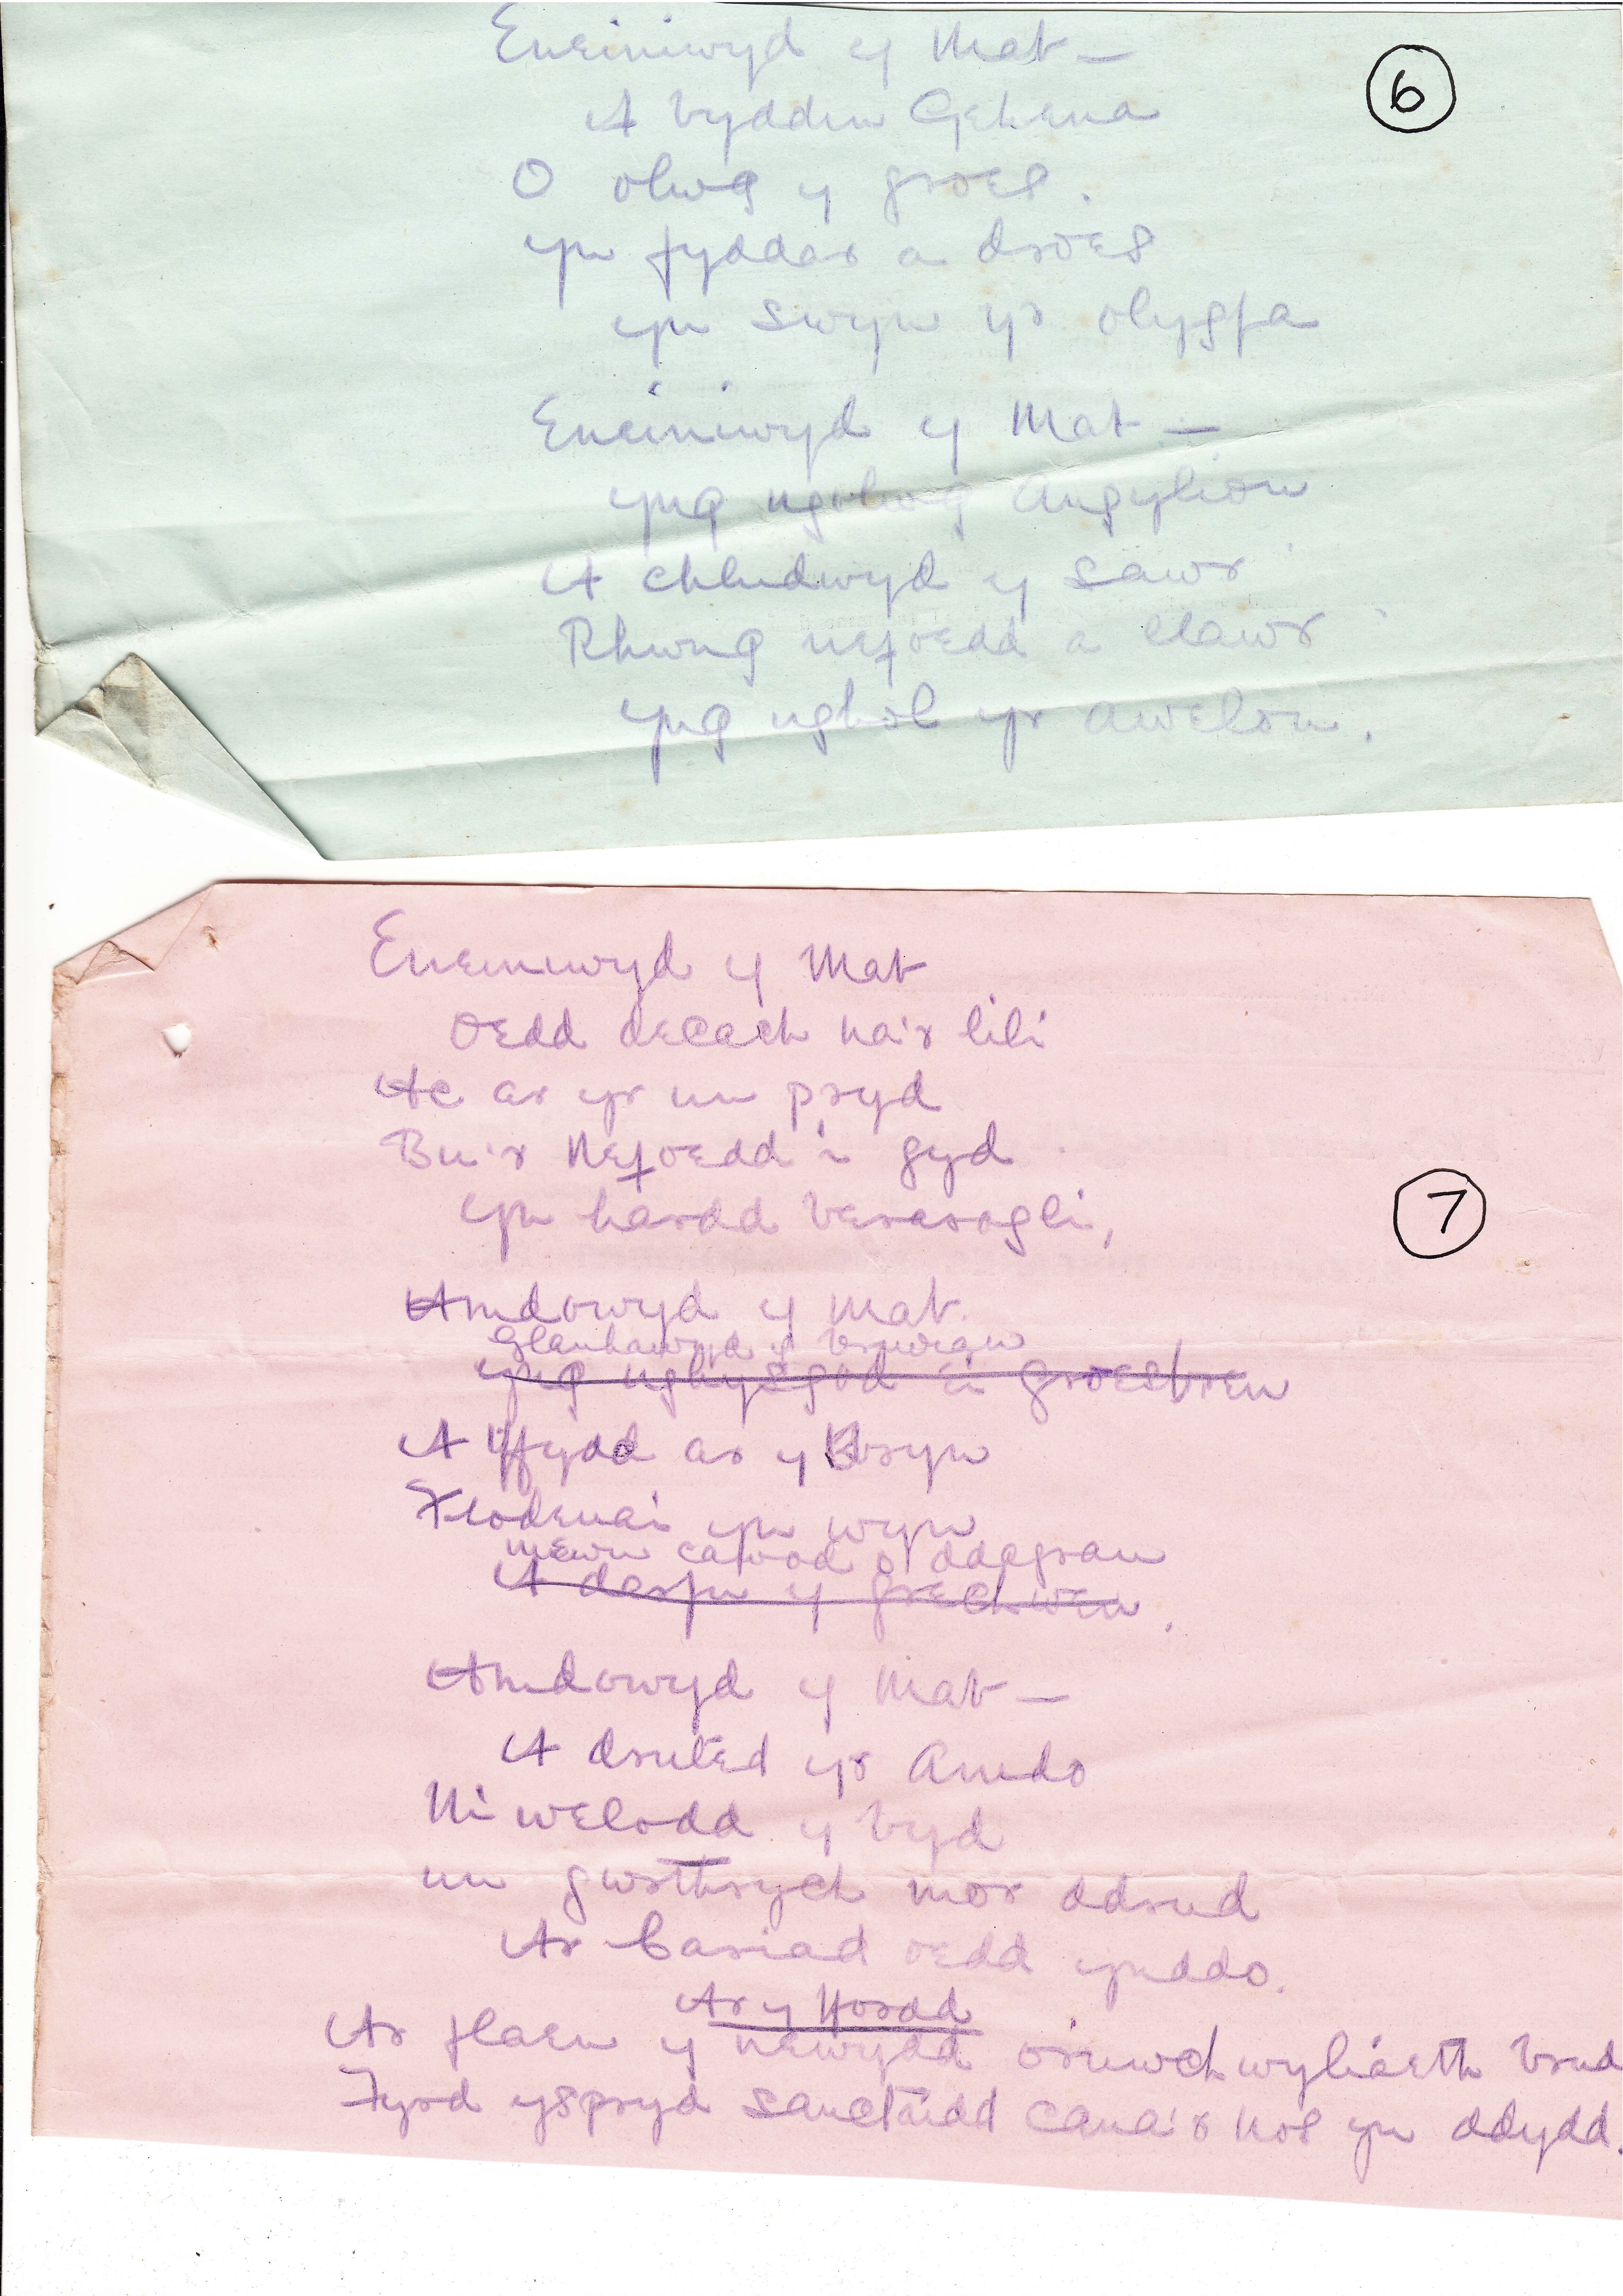 Eneiniwyd y Mab —
A byddin Gehena
6
O olwg y groes.
yn fyddar a droes
yn swyn yr olygfa
Eneiniwyd y Mab —
yng ngolwg Angylion
A chludwyd y sawr
Rhwng nefoedd a llawr
yng nghol yr awelon.
Eneiniwyd y Mab
Oedd decach na'r lili
Ac ar yr un pryd
Bu'r Nefoedd i gyd
yn hardd berarogli,
7
Amdowyd y Mab.
Glanhawyd y briwiau
yng nghysgod ei groesbren
A ffydd ar y Bryn
Flodeuai yn wyn
mewn cawod o ddagrau
A darfu y grechwen.
Amdowyd y Mab —
A druted yr Amdo
Ni welodd y byd
un gwrthrych mor ddrud
A'r Cariad oedd ynddo.
Ar y Ffordd
Ar flaen y newydd oruwchwyliaeth brud
Fyrd yspryd sanctaidd cana'r nos yn ddydd.